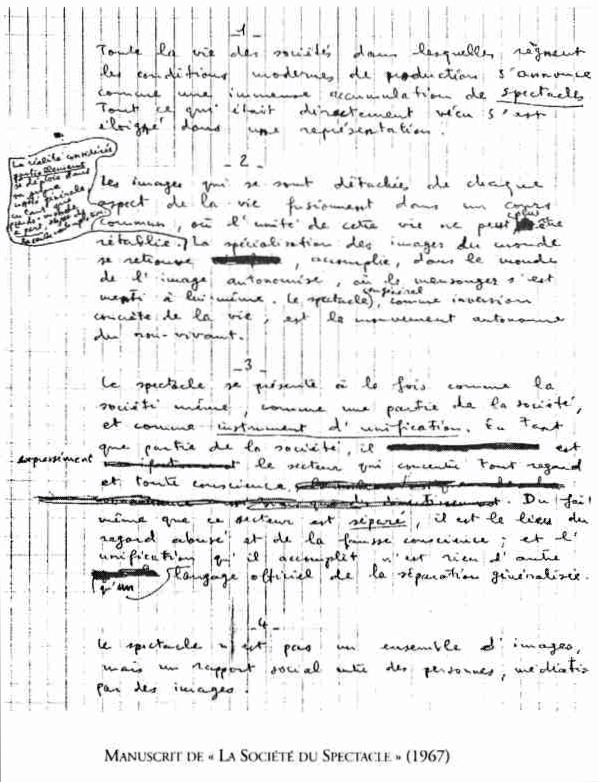 - 1 -
Toute la vie des sociétés dans lesquelles règnent
les conditions modernes de production s'annonce
comme une immense accumulation de spectacles
Tout ce qui était directement vécu s'est
éloigné dans une représentation.
- 2 -
La réalité considérée
partiellement
se déploie dans
sa propre
unité générale
en tant que
pseudo-monde
à part, objet de
la seule contemplation
Les images qui se sont détachées de chaque
aspect de la vie fusionnent dans un cours
commun, où l'unité de cette vie ne peut plus être
rétablie. La spécialisation des images du monde
se retrouve, accomplie, dans le monde
de l'image autonomisé, où le mensonger s'est
menti à lui-même. Le spectacle en général, comme inversion
concrète de la vie, est le mouvement autonome
du non-vivant.
- 3 -
Le spectacle se présente à la fois comme la
société même, comme une partie de la société,
et comme instrument d'unification. En tant
que partie de la société, il est
expressément le secteur qui concentre tout regard
et toute conscience. Du fait
même que ce secteur est séparé, il est le lieu du
regard abusé et de la fausse conscience ; et l'
unification qu'il accomplit n'est rien d'autre
qu'un langage officiel de la séparation généralisée.
- 4 -
Le spectacle n'est pas un ensemble d'images,
mais un rapport social entre des personnes, médiatisé
par des images.
MANUSCRIT DE « LA SOCIÉTÉ DU SPECTACLE » (1967)